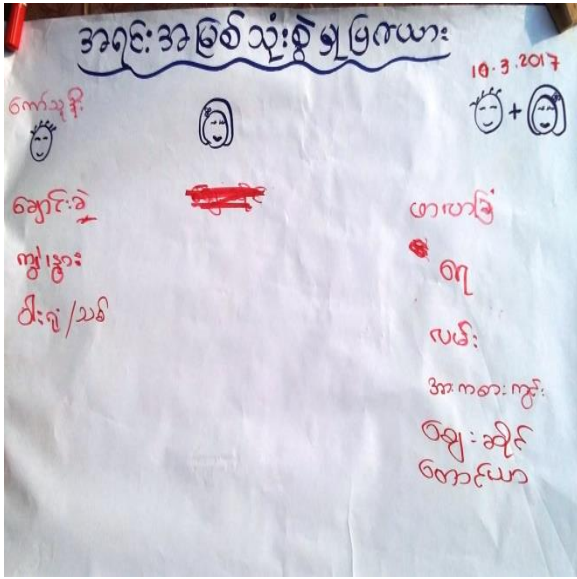 အရင်းအမြစ်သုံးစွဲမှုပြဇယား
10.3.2017
ကော်သူနိုး
+
ချောင်းခွဲ
ကျွဲ၊နွား
ဝါးရုံ/သစ်
ဖာလာခြံ
ရေ
လမ်း
အားကစားကွင်း
ဈေးဆိုင်
တောင်ယာ